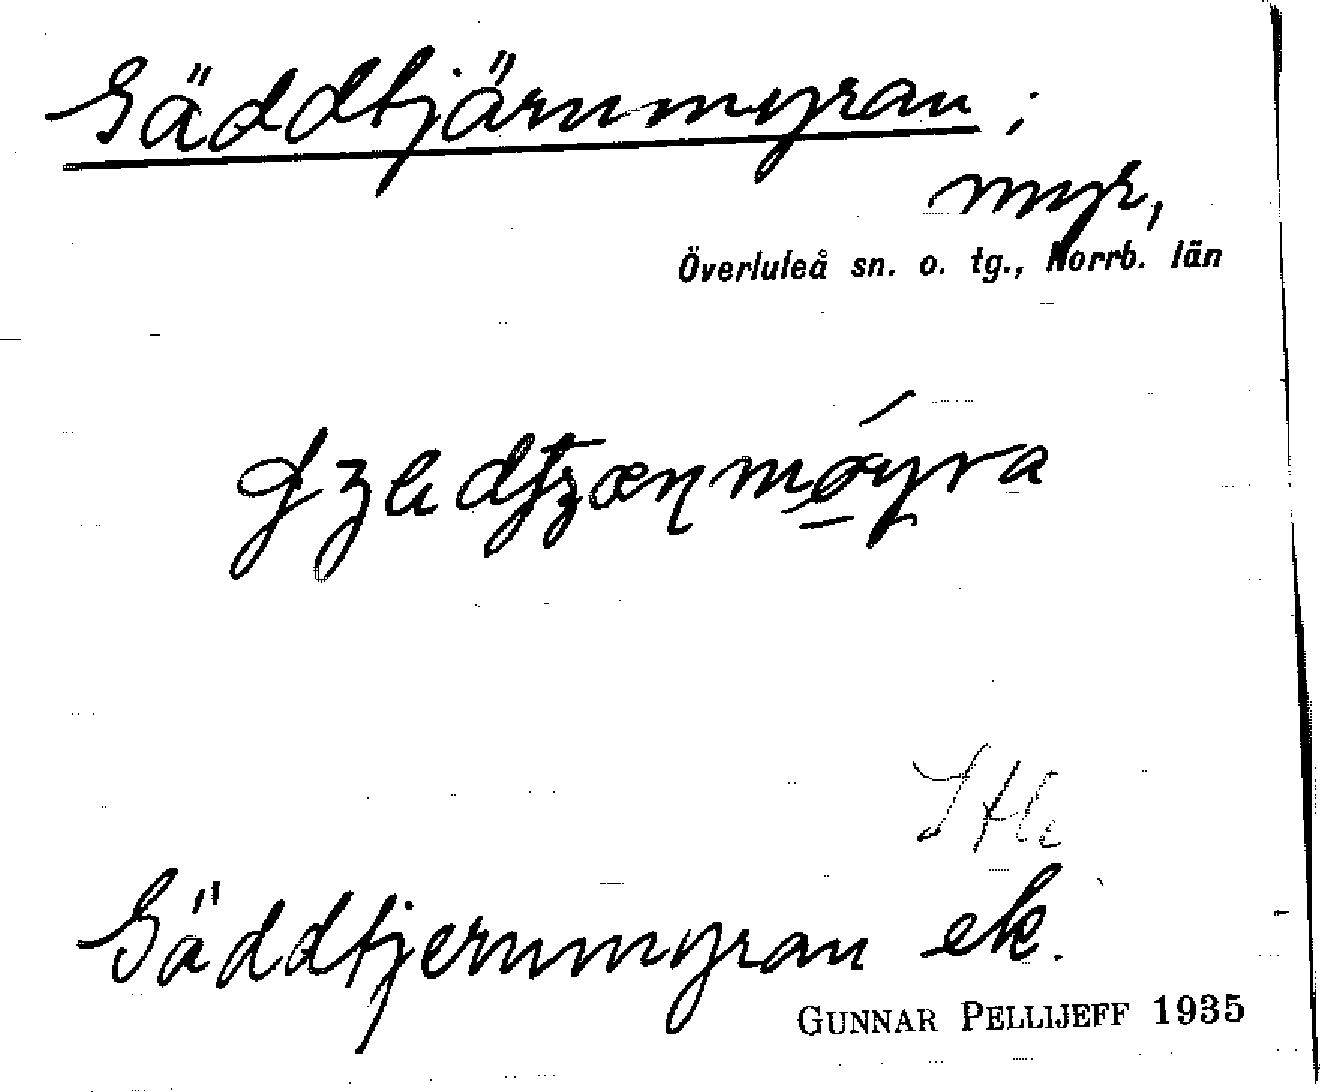 Gäddtjärnmyran;
myr,
Överluleå sn. o. tg., Norrb. län
Gäddtjernmyran ek.
GUNNAR PELLIJEFF 1935